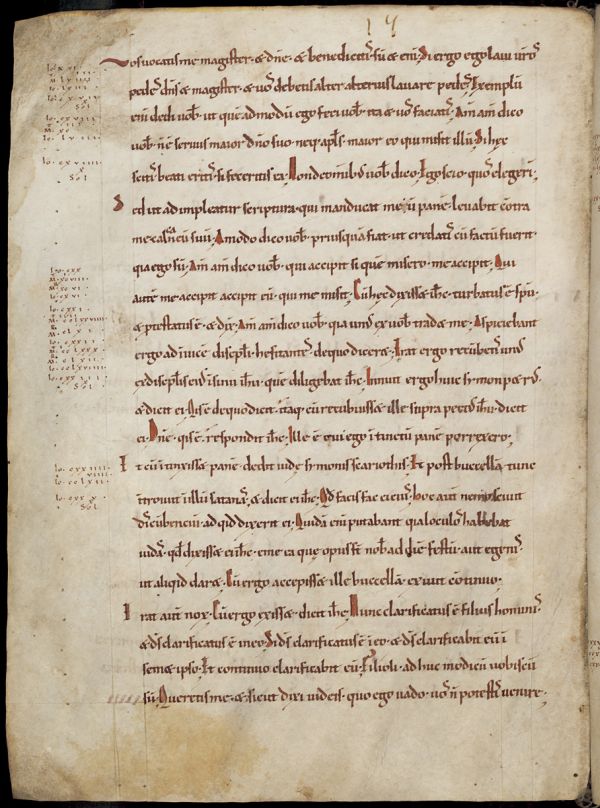 Vos vocatis me magister · & dñe · & benedicitis · sũ & enĩ · Si ergo ego laui urõs
pedes dñs & magister · & uos debetis alter alterius lauare pedes · Exemplũ
enĩ dedi uob · ut quẽ ad modũ ego feci uob · ita & uos faciatis · Am̃ am̃ dico
uob · ñ ẽ seruus maior dño suo · neq; apłs maior eo qui misit illũ · Si hec
scitis beati eritis si feceritis ea · Non de omnib; uob dico · Ego scio quos elegeri ·
Sed ut adimpleatur scriptura · qui manducat mecũ panẽ · leuabit cõtra
me calcaneũ suũ · Amodo dico uob · priusquã fiat · ut credatis cũ factũ fuerit ·
quia ego sũ · Am̃ am̃ dico uob · qui accipit si quẽ misero · me accipit · Qui
autẽ me accipit accipit eũ · qui me misit · Cũ hec dixisset ihc · turbatus ẽ spũ ·
& ptestatus ẽ · & dix · Am̃ am̃ dico uob · quia unus ex uob tradet me · Aspiciebant
ergo ad inuicẽ discipłi · hesitantes de quo diceret · Erat ergo recũbens unus
ex discipłis eius ĩ sinu ihũ · quẽ diligebat ihc · Innuit ergo huic symon petrus ·
& dicit ei · Quis ẽ de quo dicit · itaq; cũ recubuisset ille supra pectus ihũ · dicit
ei · Dñe · quis ẽ · respondit ihc · Ille ẽ cui ego ĩtinctũ panẽ porrexero ·
Et cũ ĩtinxisset panẽ · dedit iude symonis scariothis · Et post buccellã · tunc
ĩtroiuit ĩ illũ satanas · & dicit ei ihc · Qd facis fac cicius · hoc aut nemo sciuit
discũbenciũ · ad qid dixerit ei · Quidã enĩ putabant quia loculos habebat
iudas · qd dixisset ei ihc · eme ea que opus sĩt nob ad diẽ festũ · aut egenis
ut aliqid daret · Cũ ergo accepisset ille buccellã · exiuit cõtinuo ·
Erat aut nox · Cũ ergo exisset · dicit ihc · Nunc clarificatus ẽ filius hominis
& ds clarificatus ẽ in eo · Si ds clarificatus ẽ ĩ eo · & ds clarificabit eũ ĩ
semet ipso · Et continuo clarificabit eũ · Filioli · ad huc modicũ uobiscũ
sũ · Queretis me · & sicut dixi iudeis · quo ego uado · uos ñ potestis uenire ·